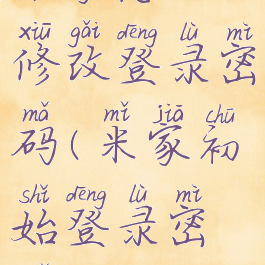 xiū gǎi dēng lù mì
修改登录密
mǎ mǐ jiā chū
码(米家初
shǐ dēng lù mì
始登录密